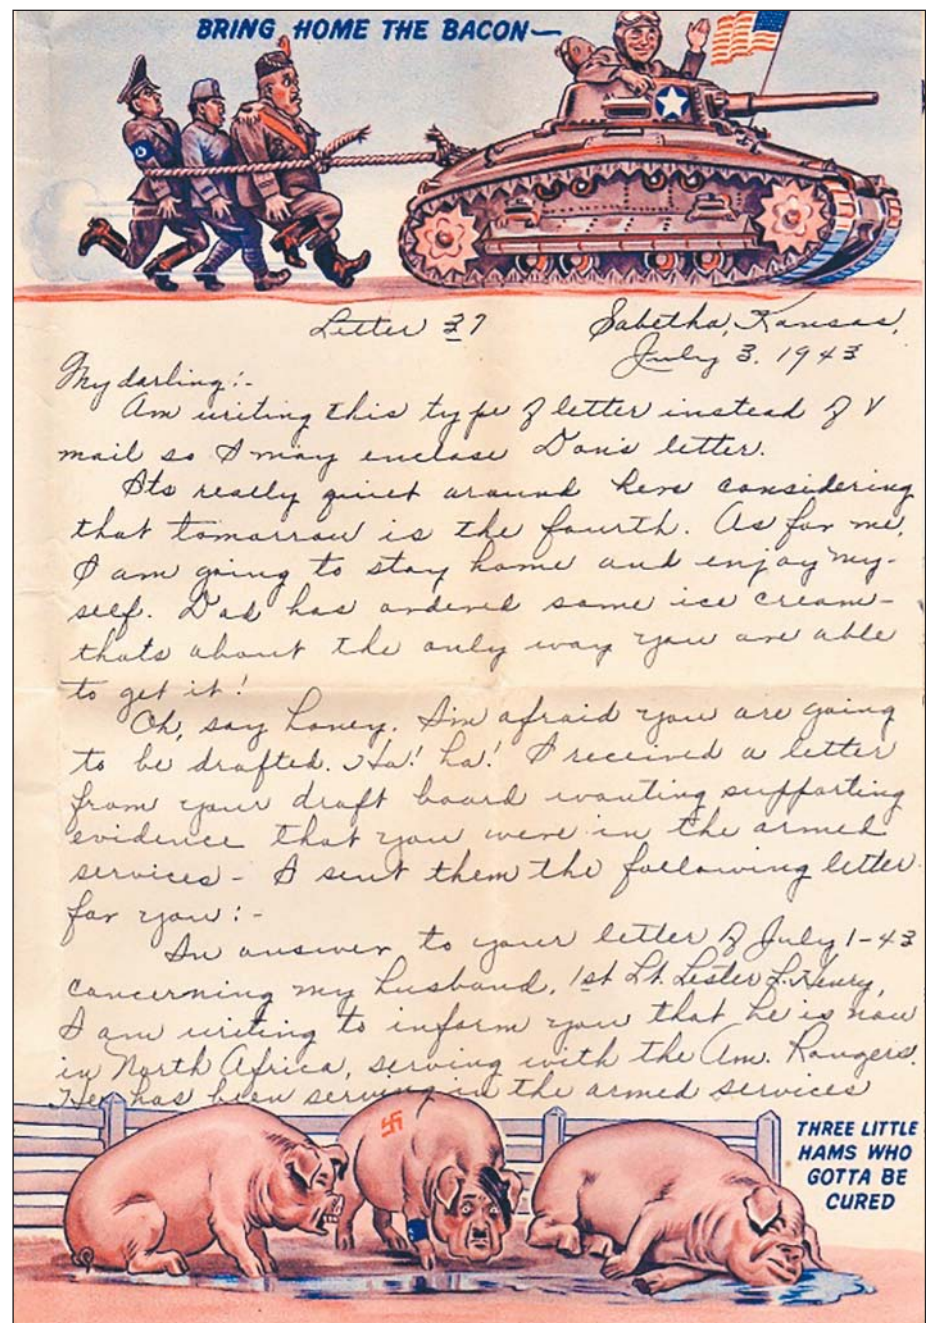 BRING HOME THE BACON—
Letter 37
Sabetha, Kansas,
July 3, 1943
My darling:-
Am writing this type of letter instead of V
mail so I may enclose Don's letter.
Its really quiet around here considering
that tomorrow is the fourth. As for me,
I am going to stay home and enjoy my-
self. Dad has ordered some ice cream-
thats about the only way you are able
to get it!
Oh, say honey, I'm afraid you are going
to be drafted. Ha! ha! I received a letter
from your draft board wanting supporting
evidence that you were in the armed
services - I sent them the following letter
for you:-
In answer to your letter of July 1-43
concerning my husband, 1st Lt. Lester L. Henry,
I am writing to inform you that he is now
in North Africa, serving with the Am. Rangers.
He has been serving in the armed services
THREE LITTLE
HAMS WHO
GOTTA BE
CURED